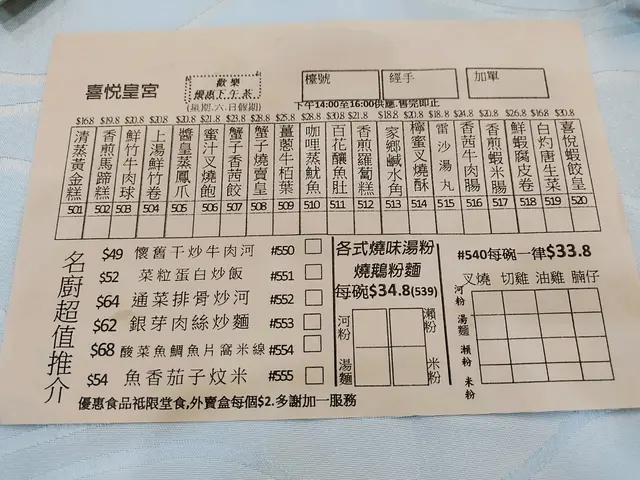 喜悅皇宮
歡樂
優惠下午茶
(星期.六.日假期)
檯號
經手
加單
下午14:00至16:00供應.售完即止
$16.8 $19.8 $20.8 $20.8 $20.8 $21.8 $23.8 $28.8 $25.8 $28.8 $30.8 $21.8 $18.8 $20.8 $16.8 $20.8 $20.8 $26.8 $16.8 $30.8
清蒸黃金糕
香煎馬蹄糕
鮮竹牛肉球
上湯鮮竹卷
醬皇蒸鳳爪
蜜汁叉燒飽
蟹子香茜餃
蟹子燒賣皇
薑蔥牛栢葉
咖哩蒸魷魚
百花釀魚肚
香煎蘿蔔糕
家鄉鹹水角
檸蜜叉燒酥
雷沙湯丸
香茜牛肉腸
香煎蝦米腸
鮮蝦腐皮卷
白灼唐生菜
喜悅蝦餃皇
501 502 503 504 505 506 507 508 509 510 511 512 513 514 515 516 517 518 519 520
名廚超值推介
$49 懷舊干炒牛肉河 #550
$52 菜粒蛋白炒飯 #551
$64 通菜排骨炒河 #552
$62 銀芽肉絲炒麵 #553
$68 酸菜魚鯛魚片窩米線 #554
$54 魚香茄子炆米 #555
各式燒味湯粉
燒鵝粉麵
每碗$34.8(539)
河粉
瀨粉
湯麵
米粉
#540每碗一律$33.8
叉燒 切雞 油雞 腩仔
河粉
湯麵
瀨粉
米粉
優惠食品祗限堂食,外賣盒每個$2.多謝加一服務